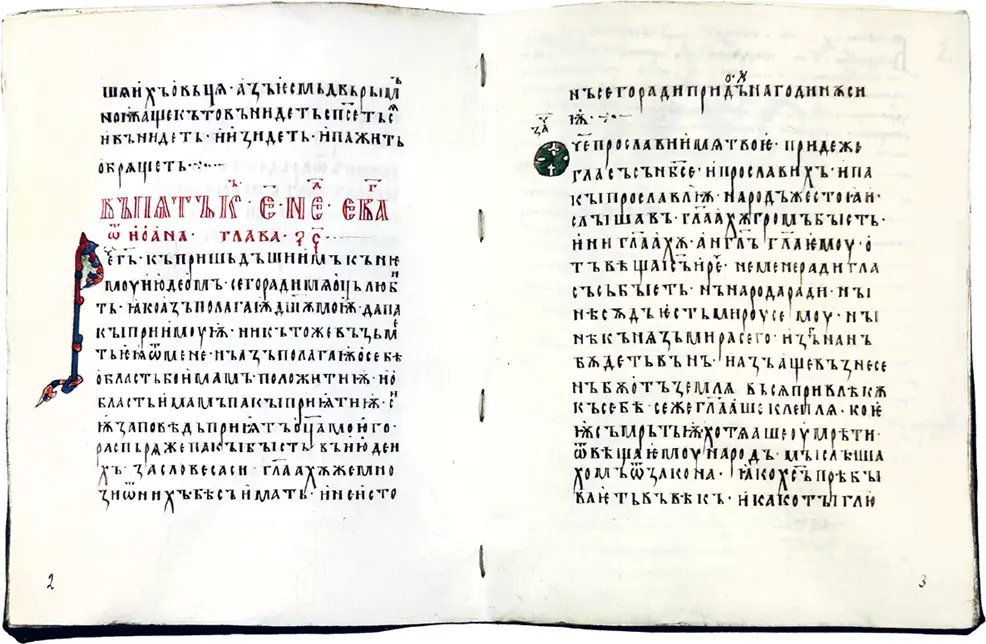 шѧихъовьцѧ· азъѥсмьдвьрьм҄
ноиѫащекътовънидетьсп҃сетьсѧ
ивънидеть· иизидеть· ипажить
обрѧщеть·
ВЪПѦТЪК· Е҃· НЕ҃· ЕВА
Ѿ ИОАНА· ГЛАВА· Ч҃
Речеп҃ь· къпришьдъшиимъкъне
моуиюдеомъ· сегорадимѧо҃цьлюби
ть· ꙗкоазъполагаѭдш҃ѫмоѭ· дапа
кыприимоуѭ· никътожевъзьме
тьеѩѿмене· нъазъполагаѭосебѣ
областьбоимамъположитиѭ· ио
бластьимамъпакыприѩтиѭ· си
ѭзаповѣдьприѩтъо҃цамоиего·
распьрѧжепакыбысть въиюдеи
хъ засловесаси· гл҃аахѫжемно
зиѿнихъбѣсъиматъ· инеисто
нъсегорадипридънагодинѫси
ѭ·
О҃чепрославиимѧтвоѥ· придеже
гласъсън҃бсе· ипрославихъ· ипа
кыпрославлѭ· народъжестоѩи·
слышавъ· гл҃аахѫгромъбысть·
ини гл҃аахѫ· анг҃лъ гл҃аѥмоу· о
тъвѣщаіс҃ъирече· неменерадигла
съсьбысть· нънародаради· ны
нѣсѫдъѥстьмироусемоу· ны
нѣкънѧзьмирасего· изгънанъ
бѫдетьвънъ· иазъащевъзнесе
нъбѫотъземлѧ вьсѧпривлѣкѫ
къსебѣ· сежегл҃аашеклеплѧ· коѥ
ѭсъмрьтиѭхотѧашеоумрѣти·
ѿвѣщаѥмоународъ· мыслыша
хомъѿзакона· ꙗкох҃съпрѣбы
ваѥтьвъвѣкъ· икакотыгл҃ю
2
3